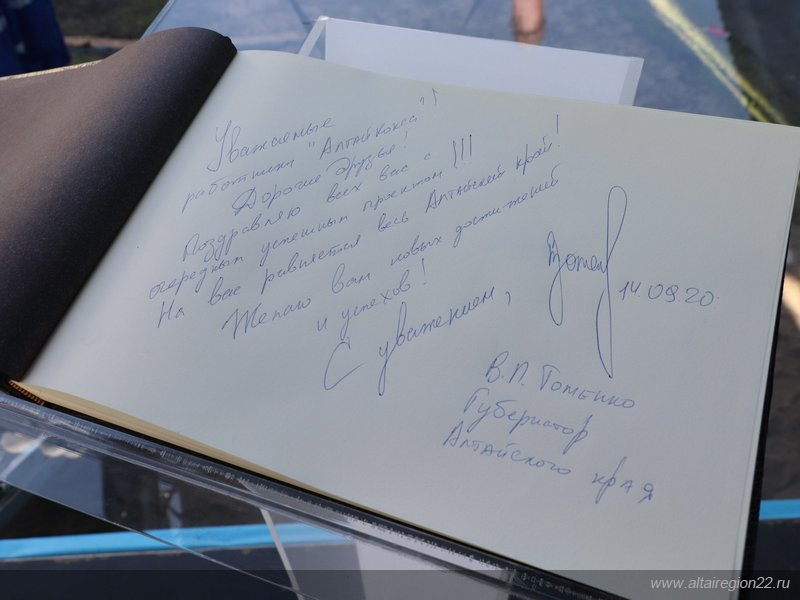 Уважаемые
работники "Алтайкокса"!
Дорогие друзья!
Поздравляю всех вас с
очередным успешным проектом!!!
На вас равняется весь Алтайский край!
Желаю вам новых достижений
и успехов!
С уважением,
14.09.20.
В.П. Томенко
Губернатор
Алтайского края
www.altairegion22.ru